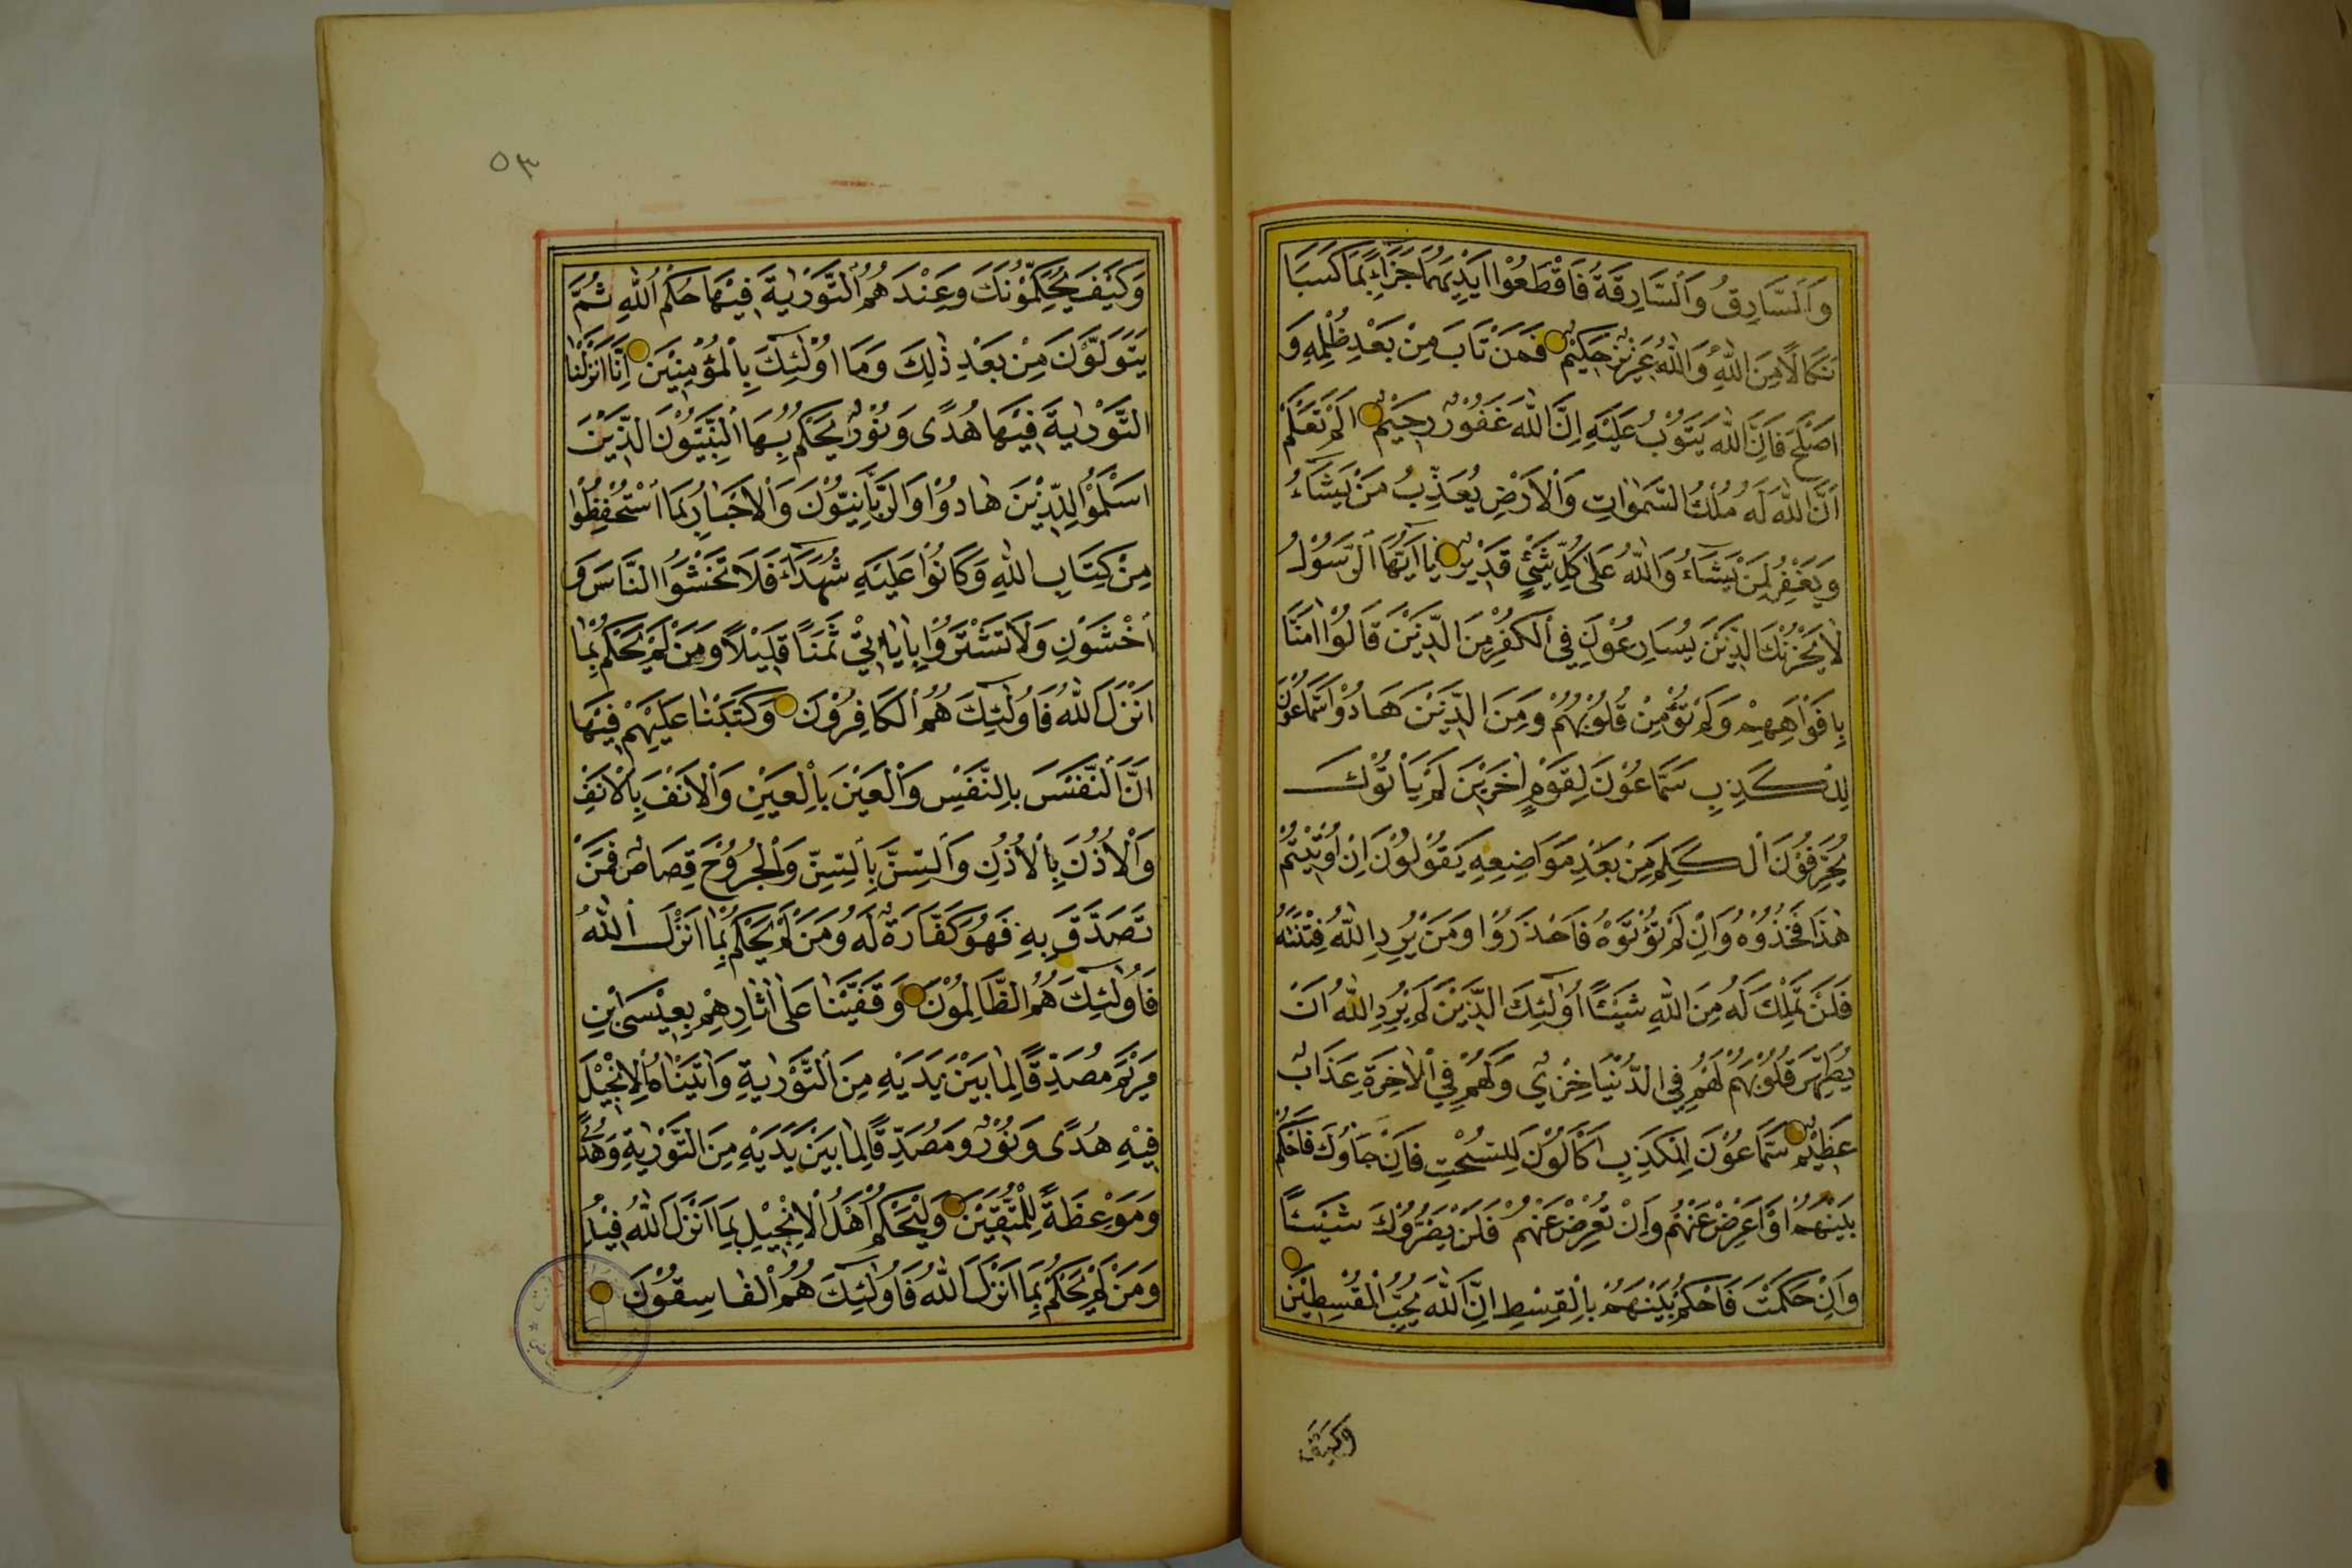 وَالسَّارِقُ وَالسَّارِقَةُ فَاقْطَعُوْا اَيْدِيَهُمَا جَزَاءً بِمَا كَسَبَا
نَكَالًا مِنَ اللّٰهِ وَاللّٰهُ عَزِيْزٌ حَكِيْمٌ فَمَنْ تَابَ مِنْ بَعْدِ ظُلْمِهِ وَ
اَصْلَحَ فَاِنَّ اللّٰهَ يَتُوْبُ عَلَيْهِ اِنَّ اللّٰهَ غَفُوْرٌ رَحِيْمٌ اَلَمْ تَعْلَمْ
اَنَّ اللّٰهَ لَهُ مُلْكُ السَّمٰوَاتِ وَالْاَرْضِ يُعَذِّبُ مَنْ يَشَآءُ
وَيَغْفِرُ لِمَنْ يَشَآءُ وَاللّٰهُ عَلٰى كُلِّ شَيْءٍ قَدِيْرٌ يَا اَيُّهَا الرَّسُوْلُ
لَا يَحْزُنْكَ الَّذِيْنَ يُسَارِعُوْنَ فِي الْكُفْرِ مِنَ الَّذِيْنَ قَالُوْا اٰمَنَّا
بِاَفْوَاهِهِمْ وَلَمْ تُؤْمِنْ قُلُوْبُهُمْ وَمِنَ الَّذِيْنَ هَادُوْا سَمَّاعُوْنَ
لِلْكَذِبِ سَمَّاعُوْنَ لِقَوْمٍ اٰخَرِيْنَ لَمْ يَأْتُوْكَ
يُحَرِّفُوْنَ الْكَلِمَ مِنْ بَعْدِ مَوَاضِعِهِ يَقُوْلُوْنَ اِنْ اُوْتِيْتُمْ
هٰذَا فَخُذُوْهُ وَاِنْ لَمْ تُؤْتَوْهُ فَاحْذَرُوْا وَمَنْ يُرِدِ اللّٰهُ فِتْنَتَهُ
فَلَنْ تَمْلِكَ لَهُ مِنَ اللّٰهِ شَيْئًا اُولٰٓئِكَ الَّذِيْنَ لَمْ يُرِدِ اللّٰهُ اَنْ
يُطَهِّرَ قُلُوْبَهُمْ لَهُمْ فِي الدُّنْيَا خِزْيٌ وَلَهُمْ فِي الْاٰخِرَةِ عَذَابٌ
عَظِيْمٌ سَمَّاعُوْنَ لِلْكَذِبِ اَكَّالُوْنَ لِلسُّحْتِ فَاِنْ جَاؤُكَ فَاحْكُمْ
بَيْنَهُمْ اَوْ اَعْرِضْ عَنْهُمْ وَاِنْ تُعْرِضْ عَنْهُمْ فَلَنْ يَضُرُّوْكَ شَيْئًا
وَاِنْ حَكَمْتَ فَاحْكُمْ بَيْنَهُمْ بِالْقِسْطِ اِنَّ اللّٰهَ يُحِبُّ الْمُقْسِطِيْنَ
وَكَيْفَ
٥٣
وَكَيْفَ يُحَكِّمُوْنَكَ وَعِنْدَهُمُ التَّوْرٰيةُ فِيْهَا حُكْمُ اللّٰهِ ثُمَّ
يَتَوَلَّوْنَ مِنْ بَعْدِ ذٰلِكَ وَمَا اُوْلٰٓئِكَ بِالْمُؤْمِنِيْنَ اِنَّا اَنْزَلْنَا
التَّوْرٰيةَ فِيْهَا هُدًى وَنُوْرٌ يَحْكُمُ بِهَا النَّبِيُّوْنَ الَّذِيْنَ
اَسْلَمُوْا لِلَّذِيْنَ هَادُوْا وَالرَّبَّانِيُّوْنَ وَالْاَحْبَارُ بِمَا اسْتُحْفِظُوْا
مِنْ كِتَابِ اللّٰهِ وَكَانُوْا عَلَيْهِ شُهَدَآءَ فَلَا تَخْشَوُا النَّاسَ وَ
اخْشَوْنِ وَلَا تَشْتَرُوْا بِاٰيَاتِيْ ثَمَنًا قَلِيْلًا وَمَنْ لَمْ يَحْكُمْ بِمَا
اَنْزَلَ اللّٰهُ فَاُولٰٓئِكَ هُمُ الْكَافِرُوْنَ وَكَتَبْنَا عَلَيْهِمْ فِيْهَا
اَنَّ النَّفْسَ بِالنَّفْسِ وَالْعَيْنَ بِالْعَيْنِ وَالْاَنْفَ بِالْاَنْفِ
وَالْاُذُنَ بِالْاُذُنِ وَالسِّنَّ بِالسِّنِّ وَالْجُرُوْحَ قِصَاصٌ فَمَنْ
تَصَدَّقَ بِهِ فَهُوَ كَفَّارَةٌ لَهُ وَمَنْ لَمْ يَحْكُمْ بِمَا اَنْزَلَ اللّٰهُ
فَاُولٰٓئِكَ هُمُ الظَّالِمُوْنَ وَقَفَّيْنَا عَلٰى اٰثَارِهِمْ بِعِيْسَى ابْنِ
مَرْيَمَ مُصَدِّقًا لِمَا بَيْنَ يَدَيْهِ مِنَ التَّوْرٰيةِ وَاٰتَيْنَاهُ الْاِنْجِيْلَ
فِيْهِ هُدًى وَنُوْرٌ وَمُصَدِّقًا لِمَا بَيْنَ يَدَيْهِ مِنَ التَّوْرٰيةِ وَهُدًى
وَمَوْعِظَةً لِلْمُتَّقِيْنَ وَلْيَحْكُمْ اَهْلُ الْاِنْجِيْلِ بِمَا اَنْزَلَ اللّٰهُ فِيْهِ
وَمَنْ لَمْ يَحْكُمْ بِمَا اَنْزَلَ اللّٰهُ فَاُولٰٓئِكَ هُمُ الْفَاسِقُوْنَ